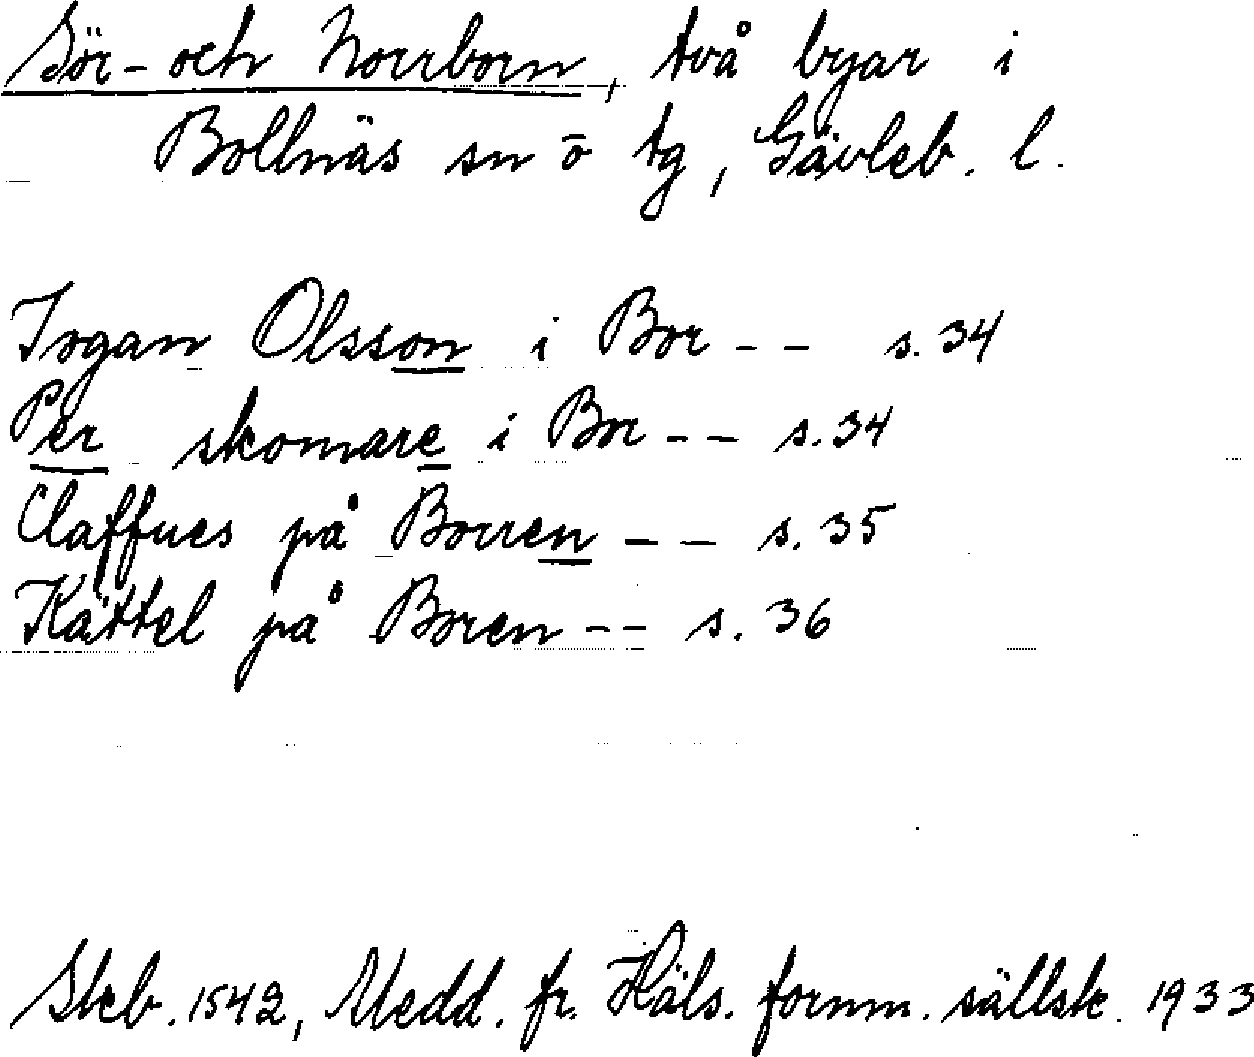 Sör- och Norrborn, två byar i
Bollnäs sn o tg, Gävleb. l.
Ingan Olsson i Bor -- s. 34
Per skomare i Bor -- s. 34
Claffues på Borren -- s. 35
Kättel på Boren -- s. 36
Skeb. 1542, Medd. fr. Häls. fornm. sällsk. 1933